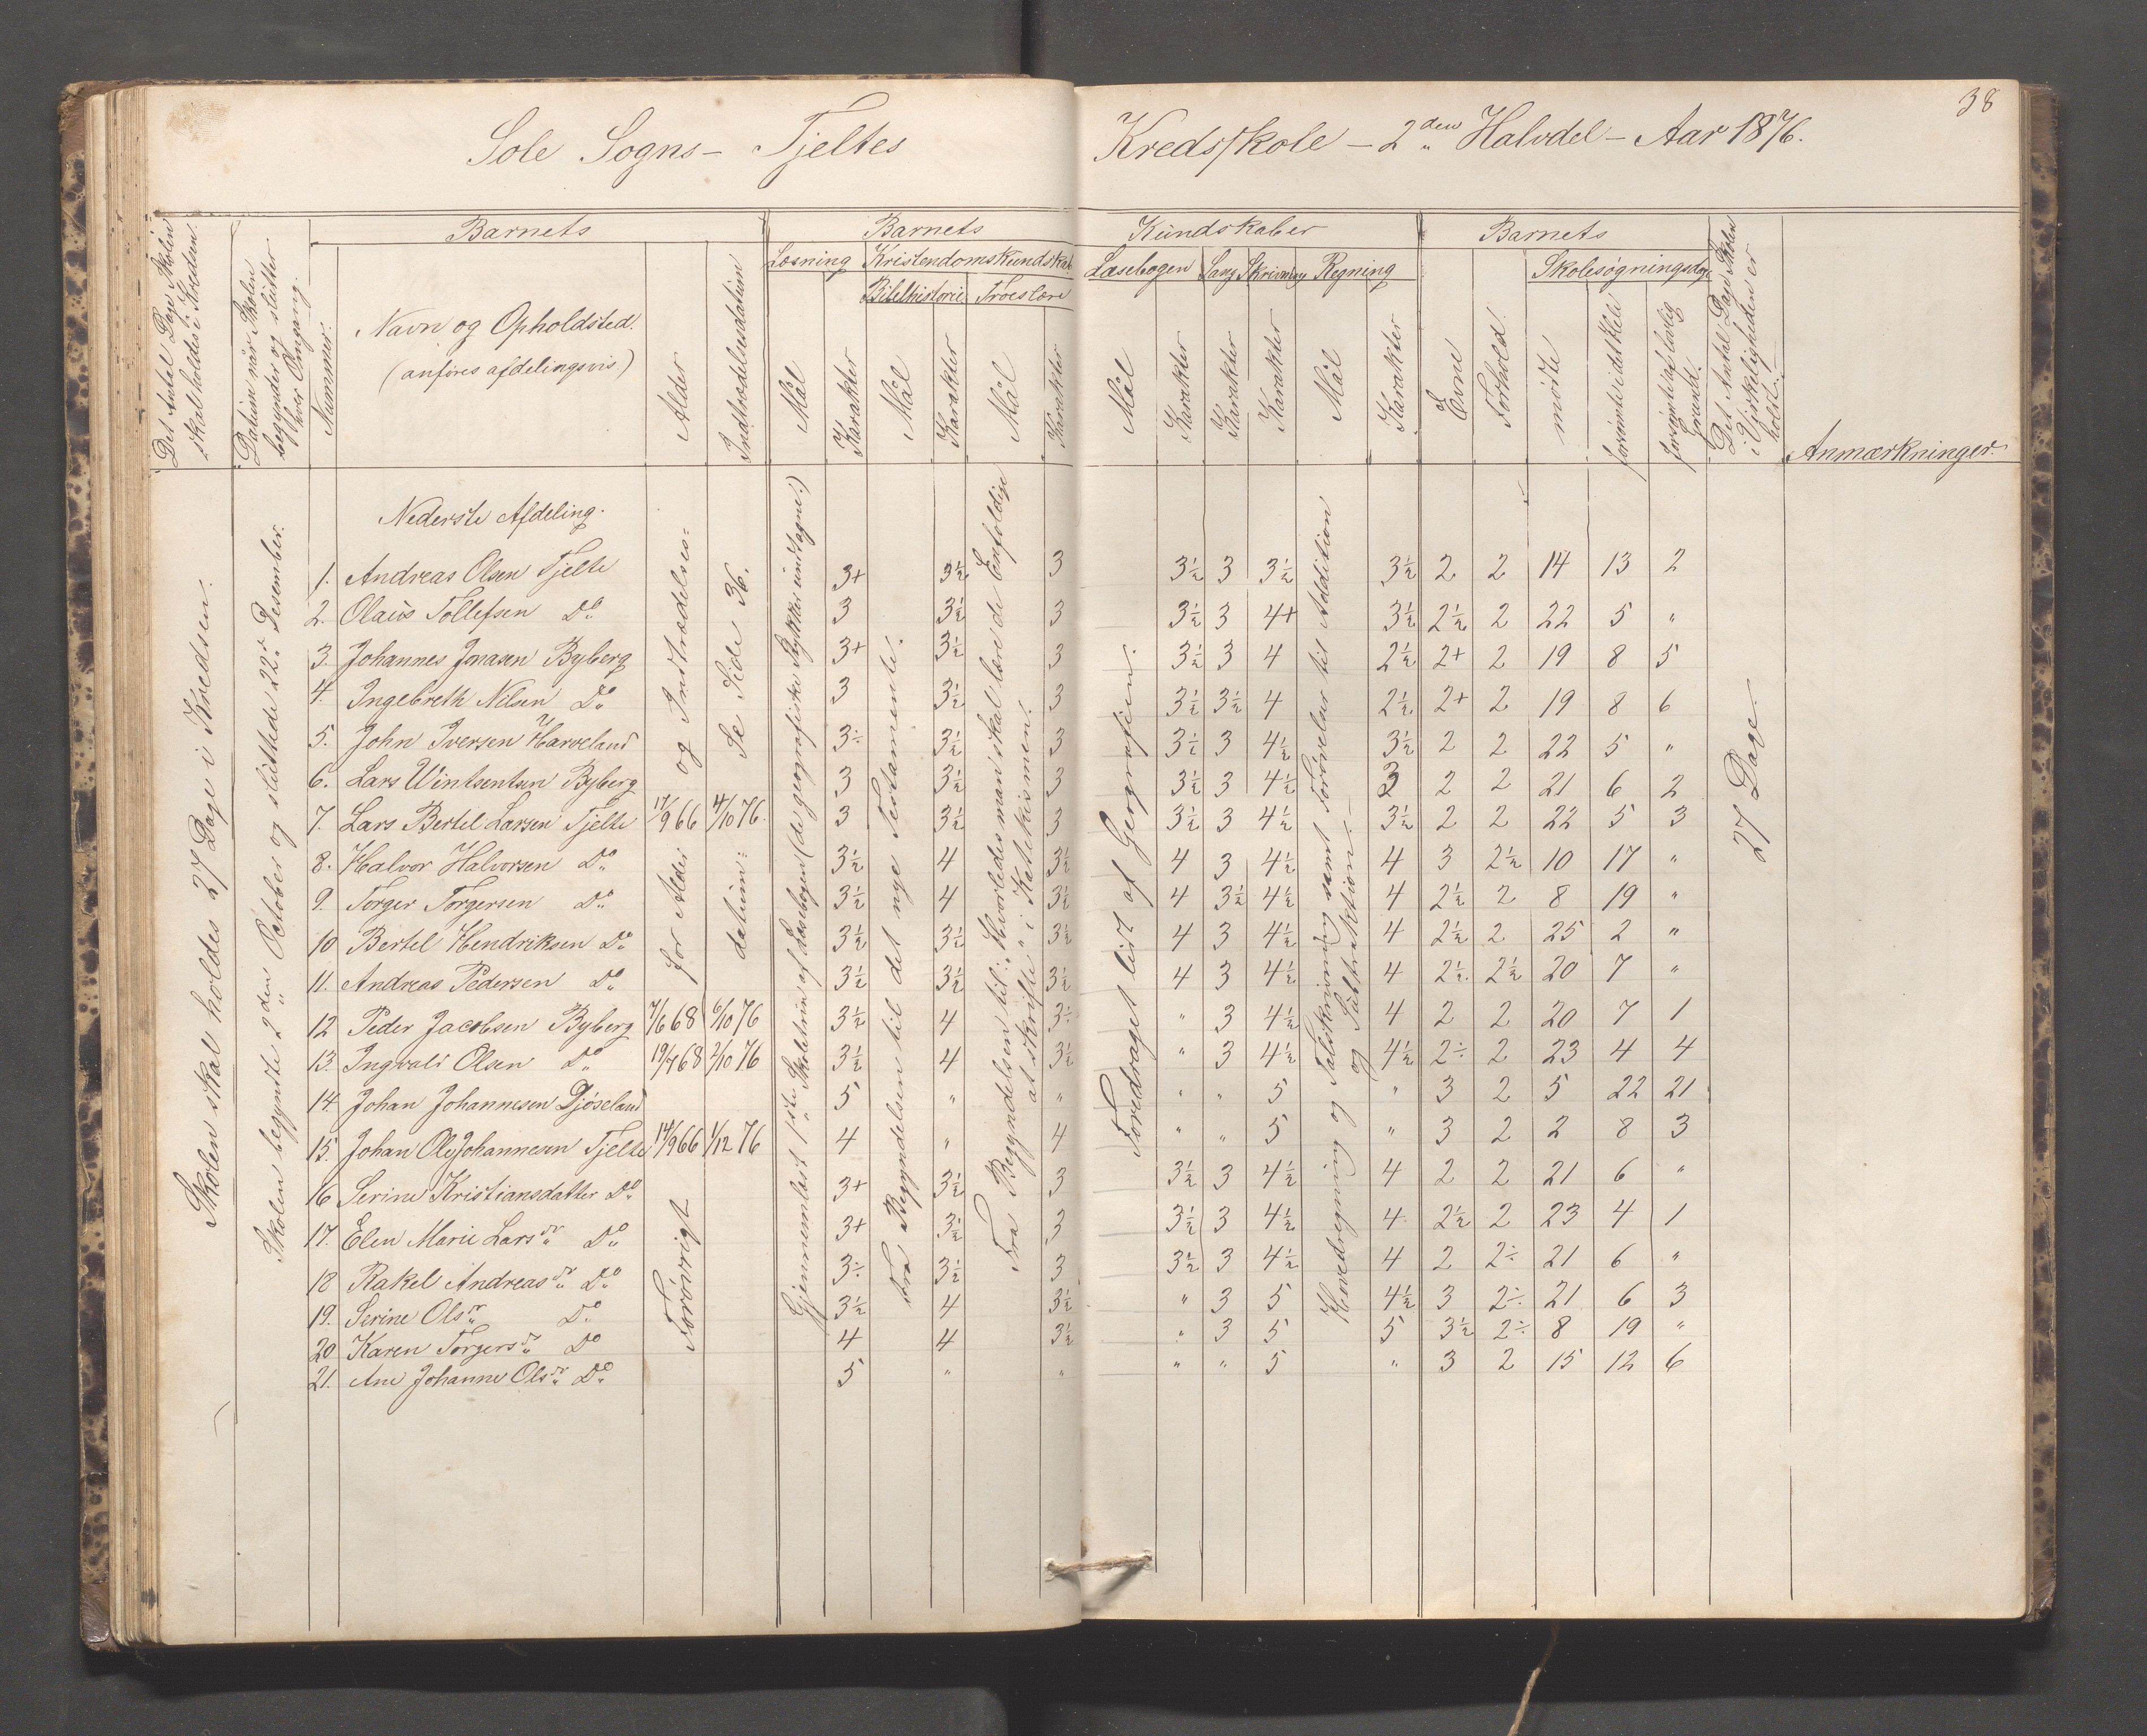 38
Sole Sogns – Tjeltes Kredsskole – 2den Halvdel – Aar 1876.
Barnets
Barnets Kundskaber
Barnets
Læsning Kristendomskundskab Læsebogen Sang Skrivning Regning
Skolesøgningsdage
Bibelhistorie Troeslære
Det Antal Dage Skolen skal holdes i Kredsen.
Datum når Skolen begynder og slutter hver Omgang.
Nummer.
Navn og Opholdsted.
(anføres afdelingsvis)
Alder
Indtrædelsesdatum
Mål
Karakter
Mål
Karakter
Mål
Karakter
Mål
Karakter
Karakter
Karakter
Mål
Karakter
Evne
Forhold.
mødte
forsømte i det Hele
forsømte af lovlig Grund.
Det Antal Dage Skolen i Virkeligheden er holdt.
Anmærkninger.
Skolen skal holdes 27 Dage i Kredsen.
Skolen begyndte 2den October og sluttede 22. Desember.
for Alder og Indtrædelses=
datum: Se Side 36.
Forøvrigt
Gjennemlæst 1ste Skoletrin af Læsebogen (de geografiske Stykker undtagne.)
Fra Begyndelsen til det nye Testamente.
Fra Begyndelsen til: "Hvorledes man skal lære de Enfoldige
at skrifte" i Katekismen.
Foredraget lidt af Geografien.
Hovedregning og Talskrivning samt Forøvelser til Addition
og Subtraktion.
27 Dage.
Nederste Afdeling.
1. Andreas Olsen Tjelte 3+ 3½ 3 3½ 3 3½ 3½ 2 2 14 13 2
2. Olaus Tollefsen Do 3 3½ 3 3½ 3 4+ 3½ 2½ 2 22 5 "
3. Johannes Jonasen Byberg 3+ 3½ 3 3½ 3 4 2½ 2+ 2 19 8 5
4. Ingebreth Nilsen Do 3 3½ 3 3½ 3½ 4 2½ 2+ 2 19 8 6
5. John Iversen Harveland 3÷ 3½ 3 3½ 3 4½ 3½ 2 2 22 5 "
6. Lars Wintsentsen Byberg 3 3½ 3 3½ 3 4½ 3 2 2 21 6 2
7. Lars Bertel Larsen Tjelte 17/9 66 4/10 76. 3 3½ 3 3½ 3 4½ 3½ 2 2 22 5 3
8. Halvor Halvorsen Do 3½ 4 3½ 4 3 4½ 4 3 2½ 10 17 "
9. Torger Torgersen Do 3½ 4 3½ 4 3½ 4½ 4 2½ 2 8 19 "
10 Bertel Hendriksen Do 3½ 3½ 3½ 4 3 4½ 4 2½ 2 25 2 "
11. Andreas Pedersen Do 3½ 3½ 3½ 4 3 4½ 4 2½ 2½ 20 7 "
12 Peder Jacobsen Byberg 7/6 68 6/10 76 3½ 4 3÷ " 3 4½ 4 2 2 20 7 1
13. Ingvald Olsen Do 19/7 68 2/10 76 3½ 4 3½ " 3 4½ 4½ 2÷ 2 23 4 4
14. Johan Johannesen Djøseland 5 " " " " 5 " 3 2 5 22 21
15. Johan Ole Johannesen Tjelte 14/9 66 1/12 76 4 " 4 " " 5 " 3 2 2 8 3
16 Serine Kristiansdatter Do 3+ 3½ 3 3½ 3 4½ 4 2 2 21 6 "
17. Elen Marie Larsdr Do 3+ 3½ 3 3½ 3 4½ 4 2½ 2 23 4 1
18 Rakel Andreasdr Do 3÷ 3½ 3 3½ 3 4½ 4 2 2÷ 21 6 "
19. Serine Olsdr Do 3½ 4 3½ " 3 5 4½ 3 2÷ 21 6 3
20 Karen Torgersdr Do 4 4 3½ " 3 5 5 3½ 2÷ 8 19 "
21. Ane Johanne Olsdr Do 5 " " " " 5 " 3 2 15 12 6